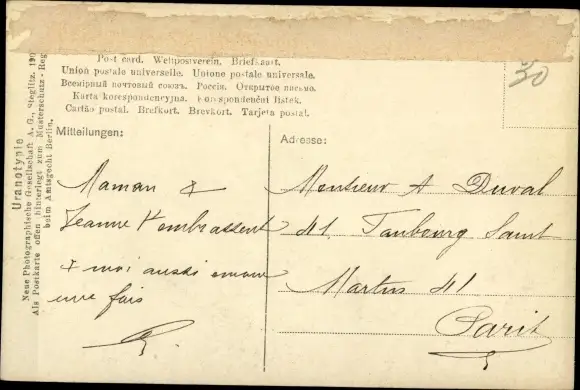 Post card. Weltpostverein. Briefkaart.
Union postale universelle. Unione postale universale.
Всемірный почтовый союзъ. Россія. Открытое письмо.
Karta korespondencyjna. Korespondenční lístek.
Cartão postal. Brefkort. Brevkort. Tarjeta postal.
30
Uranotypie
Neue Photographische Gesellschaft A. G., Steglitz. 190
Als Postkarte offen hinterlegt zum Musterschutz-Reg
beim Amtsgericht Berlin.
Mitteilungen:
Maman &
Jeanne t'embrassent
& moi aussi encore
une fois
Adresse:
Monsieur A Duval
41 Faubourg Saint
Martin 41
Paris